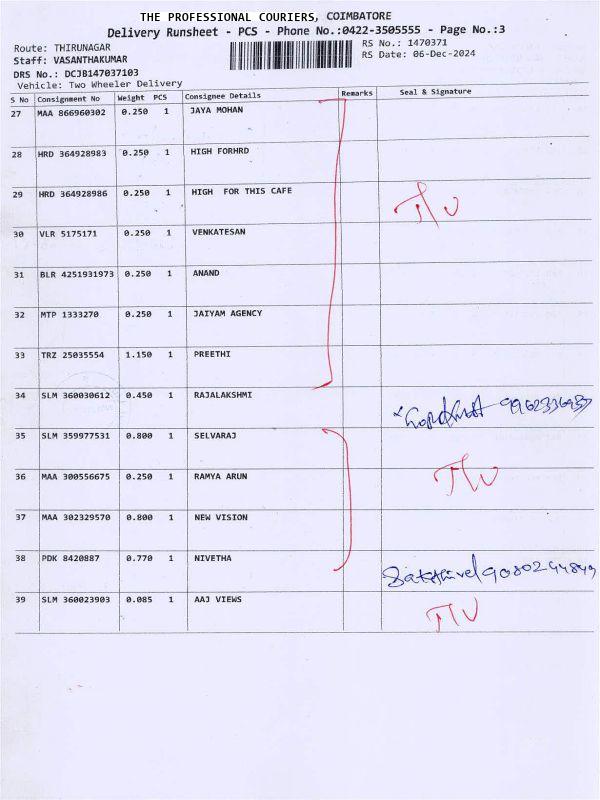 THE PROFESSIONAL COURIERS, COIMBATORE
Delivery Runsheet - PCS - Phone No.:0422-3505555 - Page No.:3
Route: THIRUNAGAR RS No.: 1470371
Staff: VASANTHAKUMAR RS Date: 06-Dec-2024
DRS No.: DCJB147037103
Vehicle: Two Wheeler Delivery
S No Consignment No Weight PCS Consignee Details Remarks Seal & Signature
27 MAA 866960302 0.250 1 JAYA MOHAN
28 HRD 364928983 0.250 1 HIGH FORHRD
29 HRD 364928986 0.250 1 HIGH FOR THIS CAFE
30 VLR 5175171 0.250 1 VENKATESAN
31 BLR 4251931973 0.250 1 ANAND
32 MTP 1333270 0.250 1 JAIYAM AGENCY
33 TRZ 25035554 1.150 1 PREETHI
34 SLM 360030612 0.450 1 RAJALAKSHMI
35 SLM 359977531 0.800 1 SELVARAJ
36 MAA 300556675 0.250 1 RAMYA ARUN
37 MAA 302329570 0.800 1 NEW VISION
38 PDK 8420887 0.770 1 NIVETHA Sakthivel 9080244849
39 SLM 360023903 0.085 1 AAJ VIEWS